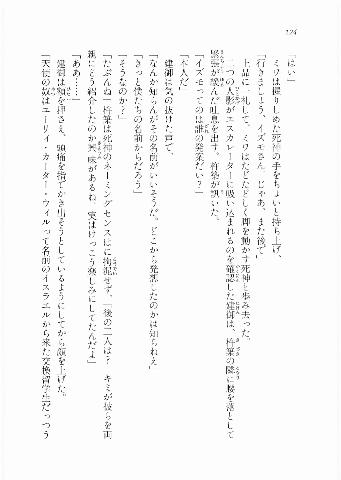 124
「はい」
　ミワは握りしめた死神の手をちょいと持ち上げ、
「行きましょう、イズモさん。じゃあ、また後で」
　上品に一礼して、ミワはたどたどしく脚を動かす死神と歩み去った。
　二つの人影がエスカレーターに吸い込まれるのを確認した建御は、杵築の隣に腰を落として
緊張が緩んだ吐息を出す。杵築が訊いた。
「イズモってのは誰の発案だい？」
「本人だ」
　建御は気の抜けた声で、
「なんか知らんがその名前がいいそうだ。どこから発想したのかは知らねえ」
「きっと僕たちの名前からだろう」
「そうなのか？」
「たぶんね」杵築は死神のネーミングセンスには拘泥せず、「後の二人は？　キミが彼らを両
親にどう紹介したのか興味があるね。実はけっこう楽しみにしてたんだよ」
「ああ……」
　建御は額を押さえ、頭痛を指でかき出そうとしているようにしてから顔を上げた。
「天使の奴はユーリィ・カーター・ウィルって名前のイスラエルから来た交換留学生だっつう